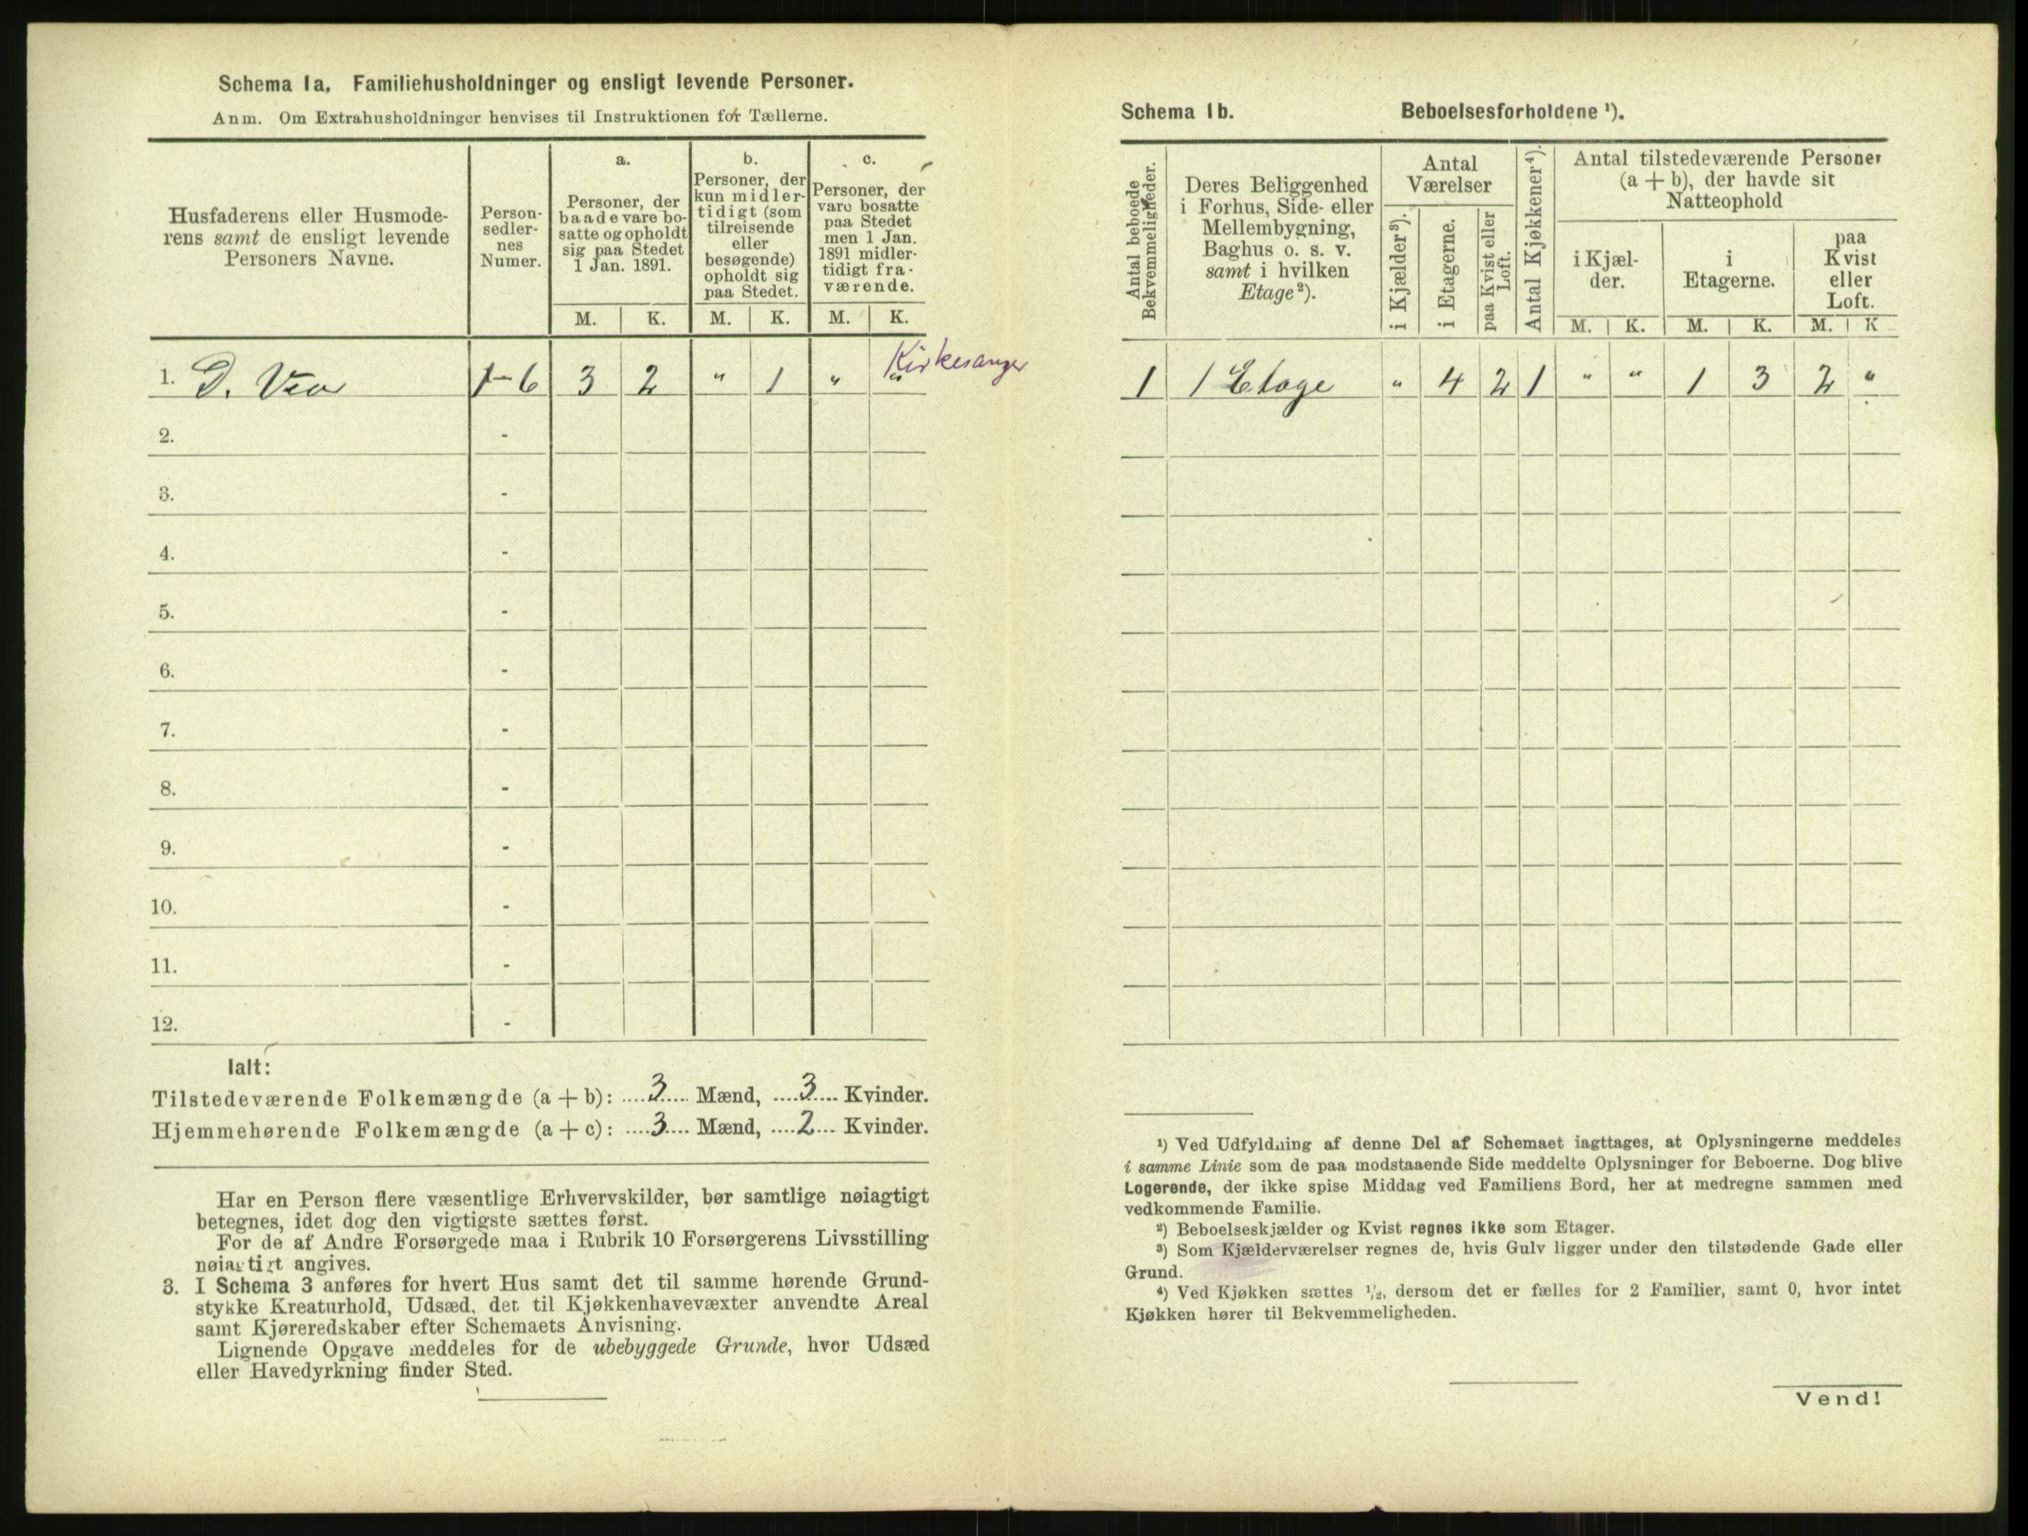 Schema 1a. Familiehusholdninger og ensligt levende Personer.
Anm. Om Extrahusholdninger henvises til Instruktionen for Tællerne.
Husfaderens eller Husmoderens samt de ensligt levende Personers Navne.
Person-sedler-nes Numer.
a.
Personer, der baade vare bosatte og opholdt sig paa Stedet 1 Jan. 1891.
b.
Personer, der kun midlertidigt (som tilreisende eller besøgende) opholdt sig paa Stedet.
c.
Personer, der vare bosatte paa Stedet men 1 Jan. 1891 midlertidigt fraværende.
M. K. M. K. M. K.
Kirkesanger
1. D. Vea 1-6 3 2 " 1 " "
2. -
3. -
4. -
5. -
6. -
7. -
8. -
9. -
10. -
11. -
12. -
Ialt:
Tilstedeværende Folkemængde (a + b): 3 Mænd, 3 Kvinder.
Hjemmehørende Folkemængde (a + c): 3 Mænd, 2 Kvinder.
Har en Person flere væsentlige Erhvervskilder, bør samtlige nøiagtigt
betegnes, idet dog den vigtigste sættes først.
For de af Andre Forsørgede maa i Rubrik 10 Forsørgerens Livsstilling
nøiagtigt angives.
3. I Schema 3 anføres for hvert Hus samt det til samme hørende Grund-
stykke Kreaturhold, Udsæd, det til Kjøkkenhavevæxter anvendte Areal
samt Kjøreredskaber efter Schemaets Anvisning.
Lignende Opgave meddeles for de ubebyggede Grunde, hvor Udsæd
eller Havedyrkning finder Sted.
Schema 1b. Beboelsesforholdene ¹).
Antal beboede Bekvemmeligheder.
Deres Beliggenhed i Forhus, Side- eller Mellembygning, Baghus o. s. v. samt i hvilken Etage²).
Antal Værelser
i Kjælder³).
i Etagerne.
paa Kvist eller Loft.
Antal Kjøkkener⁴).
Antal tilstedeværende Personer (a + b), der havde sit Natteophold
i Kjælder.
i Etagerne.
paa Kvist eller Loft.
M. K. M. K. M. K
1 1 Etage " 4 2 1 " " 1 3 2 "
¹) Ved Udfyldning af denne Del af Schemaet iagttages, at Oplysningerne meddeles
i samme Linie som de paa modstaaende Side meddelte Oplysninger for Beboerne. Dog blive
Logerende, der ikke spise Middag ved Familiens Bord, her at medregne sammen med
vedkommende Familie.
²) Beboelseskjælder og Kvist regnes ikke som Etager.
³) Som Kjælderværelser regnes de, hvis Gulv ligger under den tilstødende Gade eller
Grund.
⁴) Ved Kjøkken sættes ½, dersom det er fælles for 2 Familier, samt 0, hvor intet
Kjøkken hører til Bekvemmeligheden.
Vend!